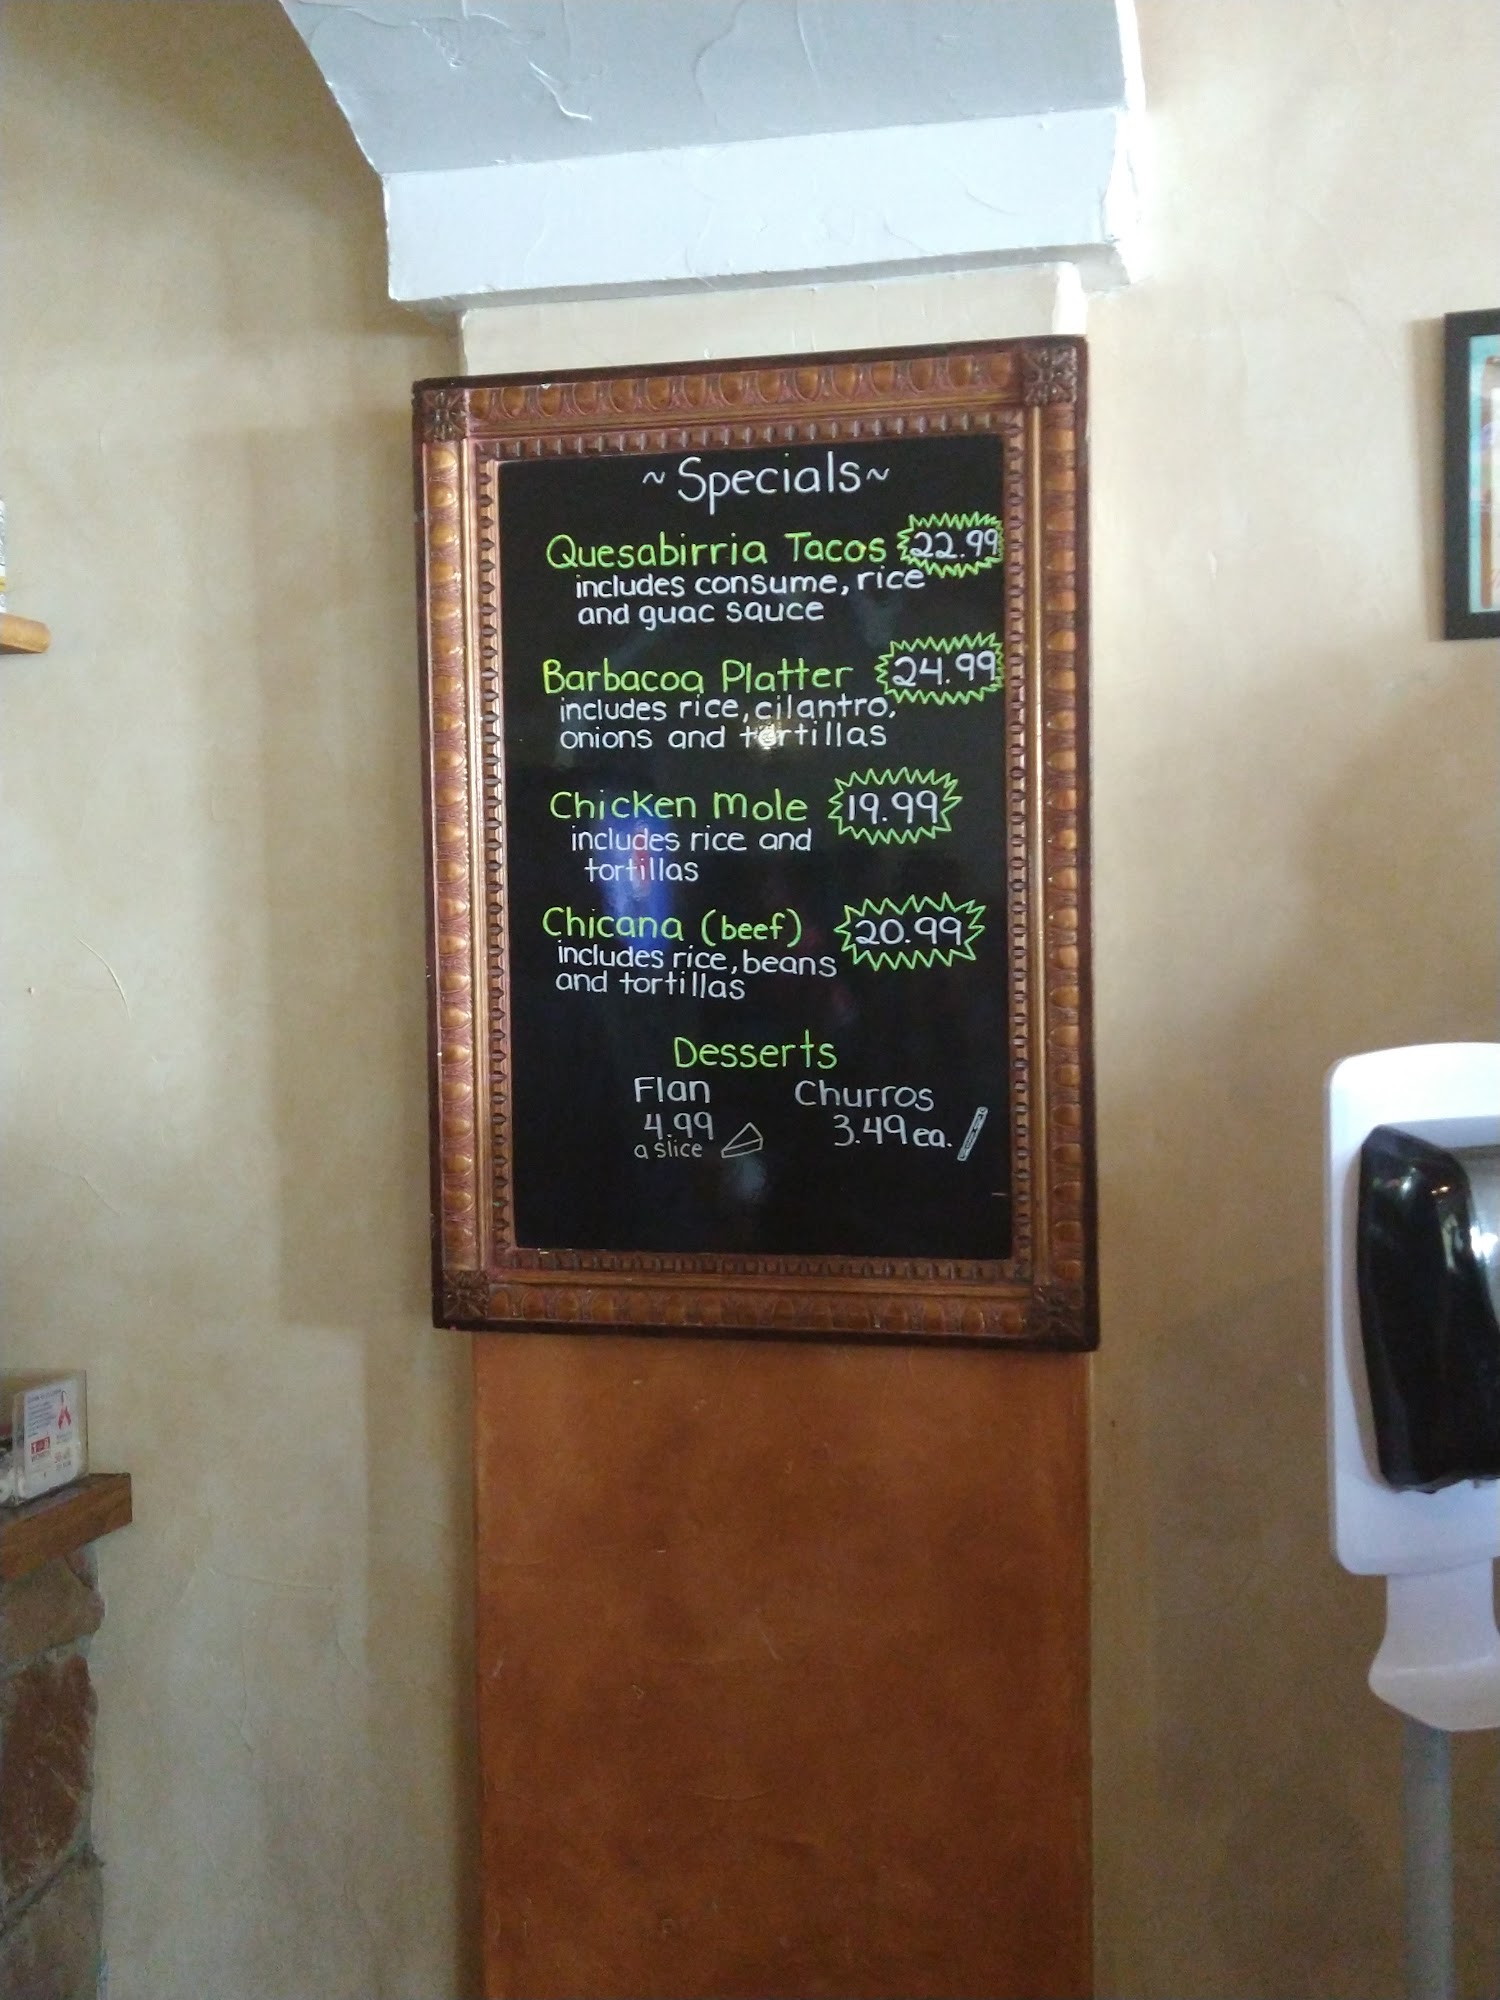 ~ Specials ~
Quesabirria Tacos 22.99
includes consume, rice
and guac sauce
Barbacoa Platter 24.99
includes rice, cilantro,
onions and tortillas
Chicken Mole 19.99
includes rice and
tortillas
Chicana (beef) 20.99
includes rice, beans
and tortillas
Desserts
Flan Churros
4.99 3.49 ea.
a slice